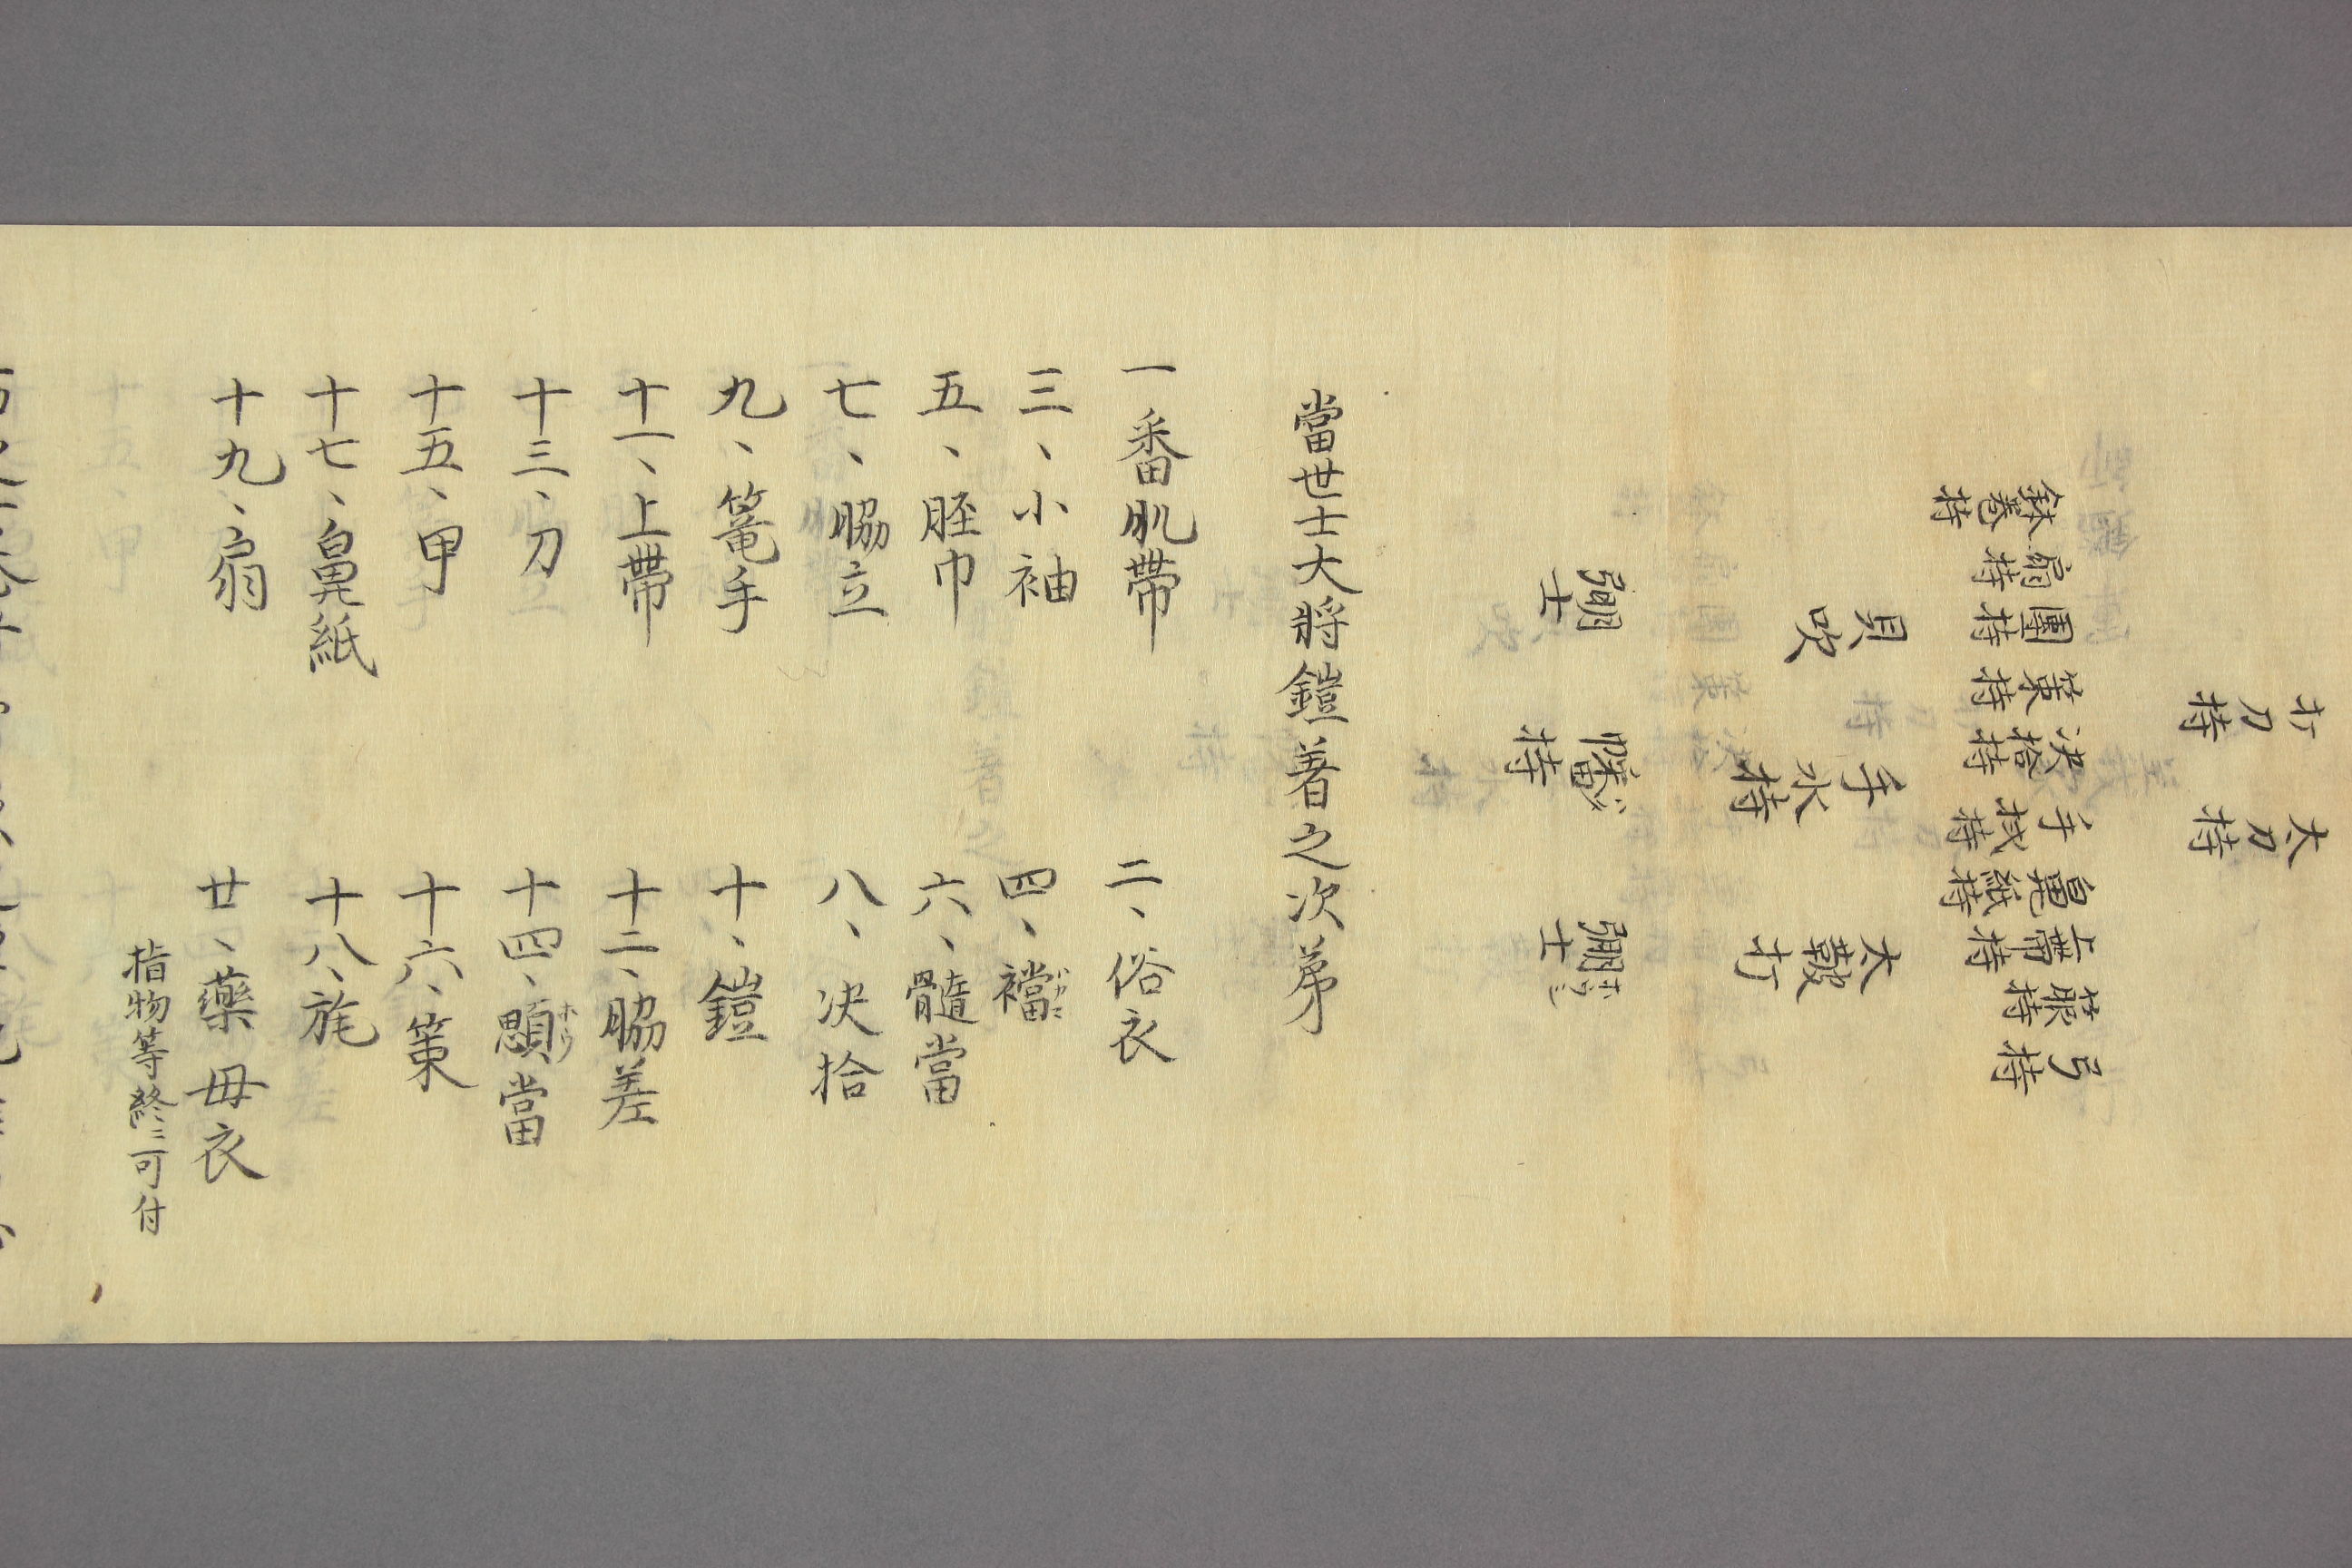 太刀持
打刀持
弓持
箙持
上帶持
鼻紙持
手拭持
决拾持
策持
團持
扇持
鉢卷持
太鼓打
手水持
貝吹
弸士
幡持
弸士
當世士大將鎧著之次第
一番肌帶
二、俗衣
三、小袖
四、襠
五、胵巾
六、髓當
七、脇立
八、决拾
九、篭手
十、鎧
十一、上帶
十二、脇差
十三、刀
十四、顋當 ホウ
十五、甲
十六、策
十七、鼻紙
十八、旄
十九、扇
廿、藥 母衣
指物等終ニ可付